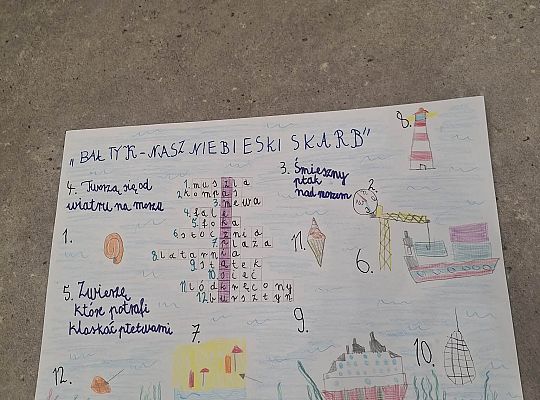 „BAŁTYK-NASZ NIEBIESKI SKARB"
8.
4. Tworzą się od
wiatru na morzu
3. Śmieszny
ptak
nad morzem
1. muszla
2. kompas
3. mewa
4. fale
5. foka
6. stocznia
7. plaża
8. latarnia
9. statek
10. sieć
11. lód kręcony
12. bursztyn
2.
1.
11.
6.
5. Zwierzę
które potrafi
klaskać płetwami
7.
9.
10.
12.